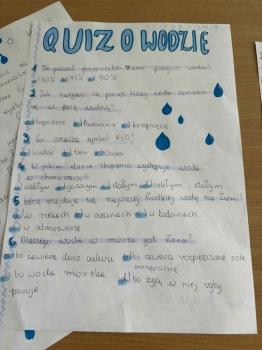 QUIZ O WODZIE
1. Ile procent powierzchni Ziemi pokrywa woda?
a) 50% b) 71% c) 90%
2. Jak nazywa się proces, kiedy woda zamienia
się w parę wodną?
a) topnienie b) parowanie c) krzepnięcie
3. Co oznacza symbol H₂O?
a) Wodór b) tlen c) Woda
4. W jakim stanie skupienia występuje woda
w chmurach?
a) ciekłym b) gazowym c) stałym d) ciekłym i stałym
5. Gdzie znajduje się najwięcej słodkiej wody na Ziemi?
a) w rzekach b) w oceanach c) w lodowcach
d) w atmosferze
6. Dlaczego woda w morzu jest słona?
a) bo zawiera dużo cukru b) bo zawiera rozpuszczone sole
mineralne
c) bo woda morska d) bo żyją w niej ryby
paruje